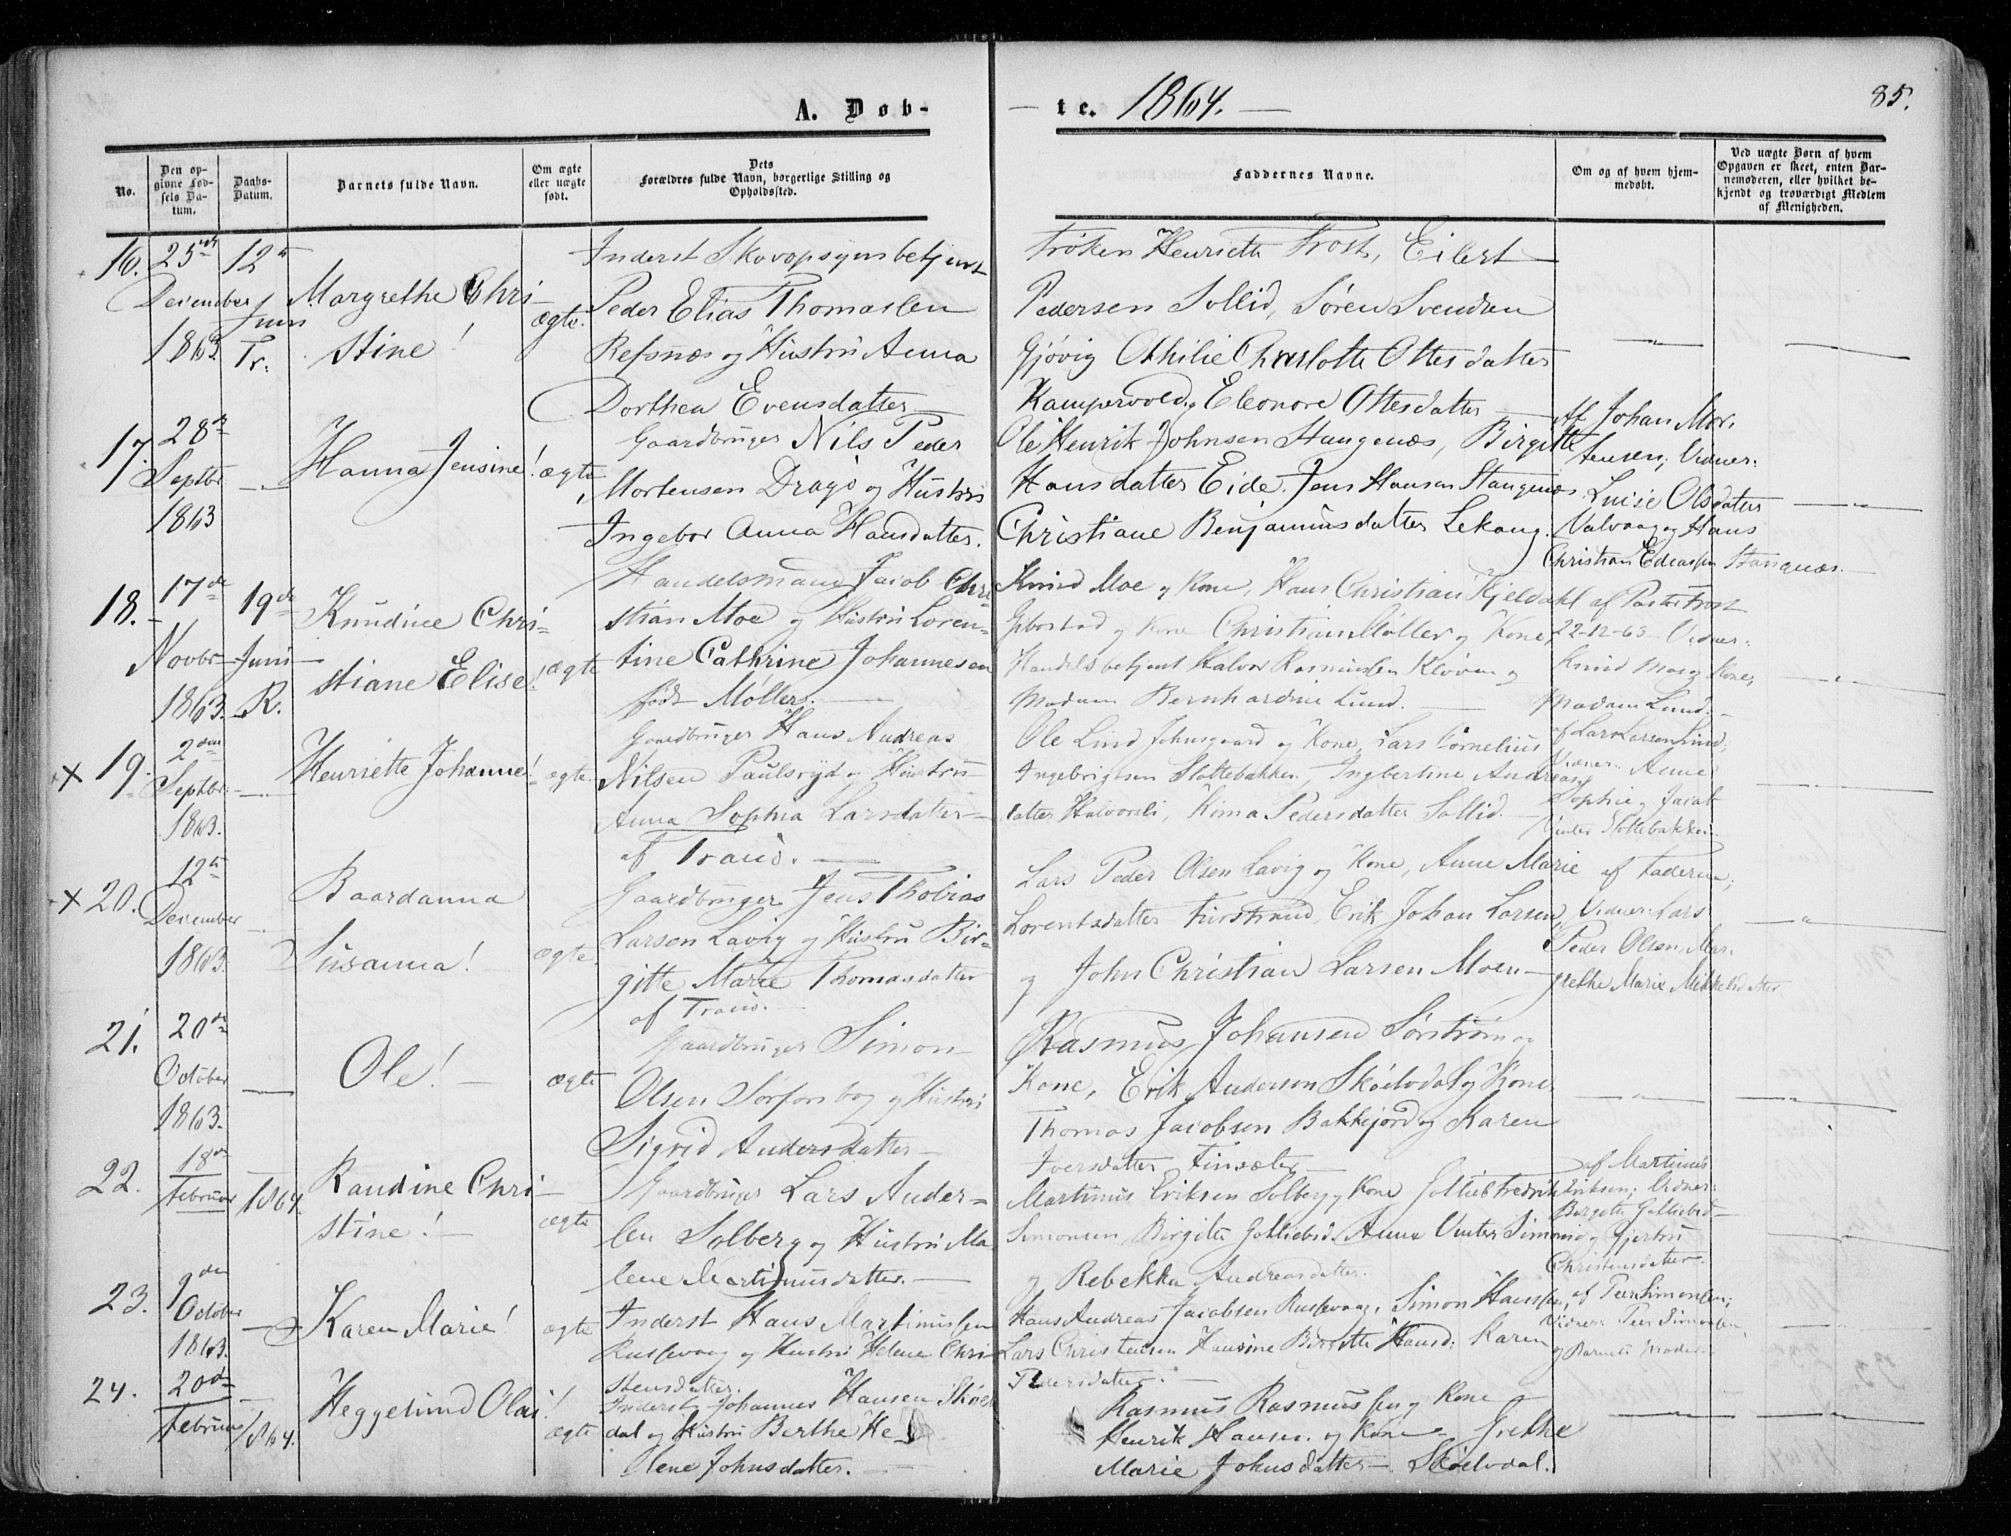 A. Døb-
te. 1864.
85.
No.
Den op-
givne Fød-
sels Da-
tum.
Daabs-
Datum.
Barnets fulde Navn.
Om ægte
eller uægte
født.
Dets
Forældres fulde Navn, borgerlige Stilling og
Opholdssted.
Faddernes Navne.
Om og af hvem hjem-
medøbt.
Ved uægte Børn af hvem
Opgaven er skeet, enten Bar-
nemoderen, eller hvilket be-
kjendt og troværdigt Medlem
af Menigheden.
16.
25de
December
1863
12te
Juni
Tr.
Margrethe Chri-
stine!
ægte.
Inderst Skovopsynsbetjent
Peder Elias Thomassen
Refsnæs og Hustru Anna
Dorthea Evensdatter
Frøken Henriette Frost, Eilert
Pedersen Sollid, Søren Svendsen
Gjøvig Othilie Charlotte Ottesdatter
Kampevold, Eleonore Ottesdatter
17.
28de
Septbr
1863
Hanna Jensine!
ægte
Gaardbruger Nils Peder
Mortensen Dragø og Hustru
Ingebor Anna Hansdatter.
Ole Henrik Johnsen Stangenæs, Birgitte
Hansdatter Eide. Jens Hansen Stangenæs
Christiane Benjaminsdatter Lekang.
Af Johan Mor-
tensen; Vidner:
Lucie Olsdatter
Valvaag og Hans
Christian Edeassen Stangnæs.
18.
17de
Novbr
1863.
19de
Juni
R.
Knudine Chri-
stiane Elise!
ægte
Handelsmand Jacob Chri-
stian Moe og Hustru Loren-
tine Cathrine Johannesen
født Møller.
Knud Moe og Kone, Hans Christian Kjeldahl
Gibostad og Kone Christian Møller og Kone,
Handelsbetjent Halvor Rasmussen Kløven og
Madam Bernhardine Lund.
af Pastor Frost
22-12-63 Vidner:
Knud Moe og Kone,
Madam Lund.
x 19.
2den
Septbr.
1863.
Henriette Johanne!
ægte.
Gaardbruger Hans Andreas
Nilsen Paulsryd og Hustru
Anna Sophia Larsdatter
af Tranø.
Ole Lind Johnsgaard og Kone, Lars Cornelius
Ingebrigtsen Slottebakken Ingbertine Andreas
datter Halvorsli, Kima Pedersdatter Sollid.
af Lars Larsen Lind;
Vidner: Anne
Sophie og Jacob
Slottebakken
x 20.
12te
December
1863.
Baardanna
Susanna!
ægte.
Gaardbruger Jens Thobias
Larsen Lavig og Hustru Bir-
gitte Marie Thomasdatter
af Tranø.
Lars Peder Olsen Lavig og Kone, Anne Marie
Lorentsdatter Finstrand, Erik Johan Larsen
og John Christian Larsen Moen
af Faderen;
Vidner: Lars
Peder Olsen, Mar-
grethe Marie Mikkelsdatter
21.
20de
October
1863.
Ole!
ægte
Gaardbruger Simon
Olsen Sørforsbog og Hustru
Sigrid Andersdatter
Rasmus Johansen Sørstrøm og
Kone, Erik Andersen Skoelvdal og Kone
Thomas Jacobsen Bakkejord og Karen
Iversdatter Finsæter
22.
18de
Februar
1864.
Randine Chri-
stine!
ægte
Gaardbruger Lars Ander-
sen Solberg og Hustru Ma-
lene Martinusdatter.
Martinus Eriksen Solberg og Kone Gottlieb Fredrik
Simonsen, Birgitte Gottliebsd. Anne Simonsd
og Rebekka Andreasdatter.
af Martinus
Eriksen; Vidner:
Birgitte Gottliebsd
og Gjertru
Christensdatter
23.
9de
October
1863.
Karen Marie!
ægte
Inderst Hans Martinussen
Russevaag og Hustru Helene Chri-
stensdatter.
Hans Andreas Jacobsen Russevaag, Simon Hanssen,
Lars Christensen Hansine Birgitte Hansd: Karen
Pedersdatter.
af Peer Simonsen;
Vidner: Peer Simonsen,
og Barnets Moder
24.
20de
Februar
1864.
Heggelund Olai!
ægte
Inderst Johannes Hansen Skoel
dal og Hustru Berthe He
lene Johnsdatter.
Rasmus Rasmussen og Kone
Henrik Hansen og Kone Grethe
Marie Johnsdatter Skoelvdal.